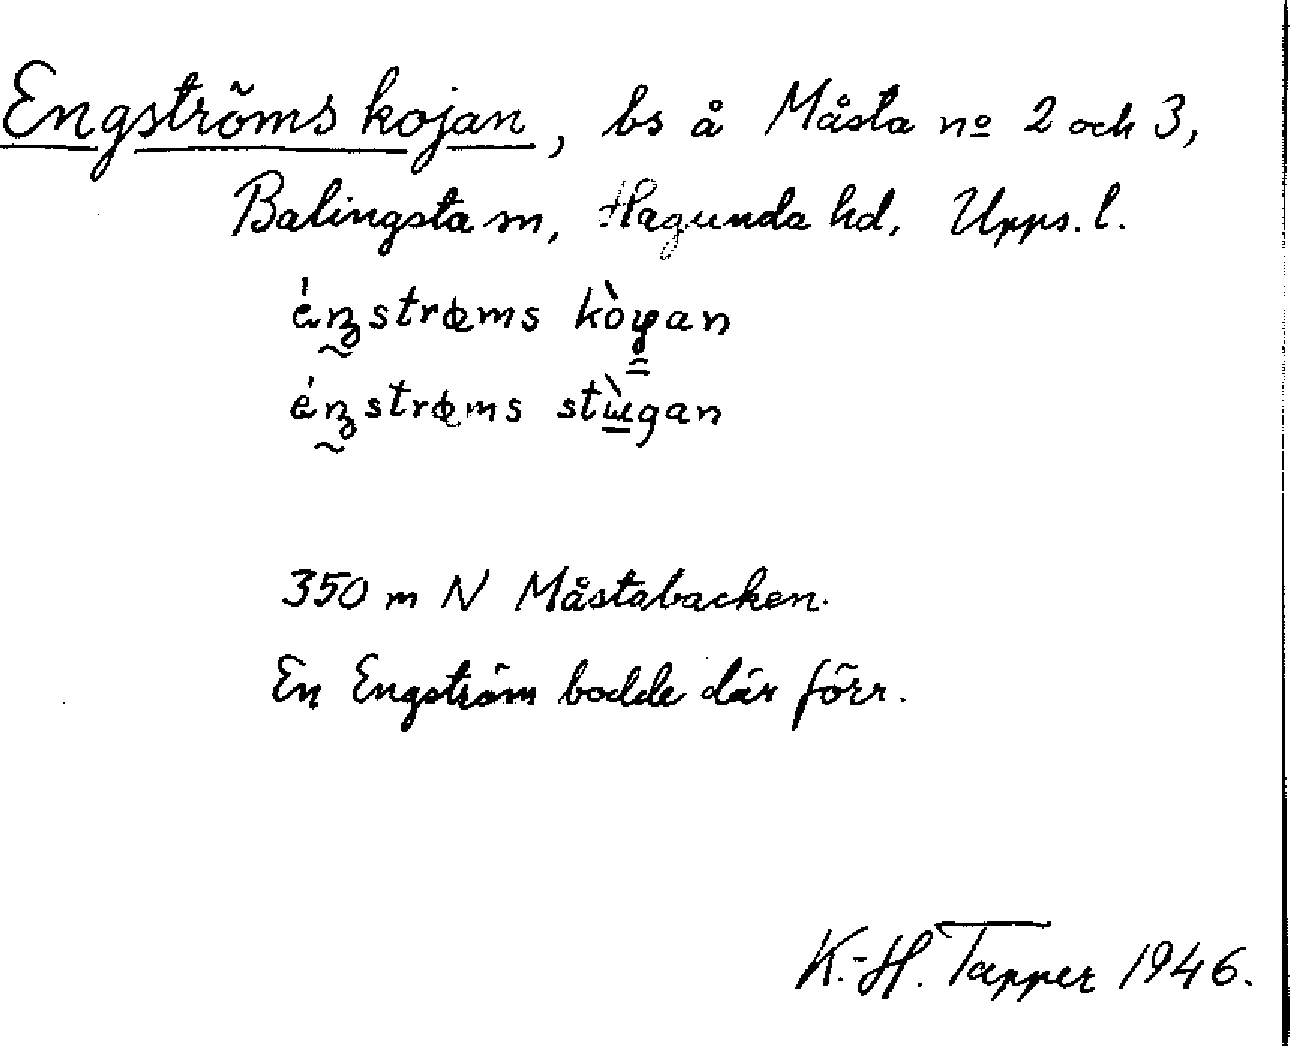 Engströms kojan, bs å Måsta nº 2 och 3,
Balingsta sn, Hagunda hd, Upps. l.
éŋstrœms kòjan
éŋstrœms stùgan
350 m N Måstabacken.
En Engström bodde där förr.
K.-H. Tapper 1946.